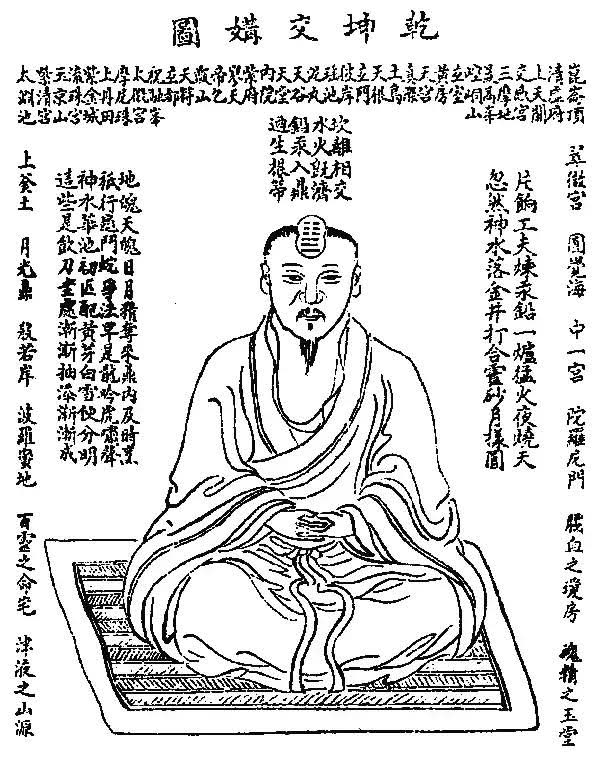 乾坤交媾圖
崑崙頂
清虛府
上天關
交感宮
三摩地
最高峯
崆峒山
玄室
黃房
天宮
真際
上島
天根
玄門
彼岸
瑤池
泥丸
天谷
天堂
內院
紫府
寥天
帝乙
甑山
天符
玄都
祝融峯
太微宮
摩尼珠
上丹田
紫金城
流珠宮
玉京山
紫清宮
太淵池
翠微宮 圓覺海 中一宮 陀羅尼門 腦血之瓊房 魂精之玉堂
片餉工夫煉汞鉛一爐猛火夜燒天
忽然神水落金井打合靈砂月樣圓
坎離相交
水火既濟
鉛汞入鼎
適生根蒂
地魄天魂日月精奪來鼎內及時烹
祇行龜鬥蛇爭法早是龍吟虎嘯聲
神水華池初匹配黃芽白雪便分明
這些是飲刀圭處漸漸抽添漸漸成
上釜土 月光鼎 般若岸 波羅蜜地 百靈之命宅 津液之山源